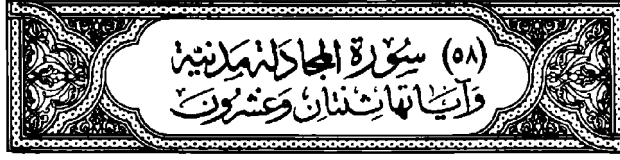 (٥٨) سُورَة المجَادلَة مَدنيّة
وَآيَاتهَا ثِنتَانِ وَعشرُونَ